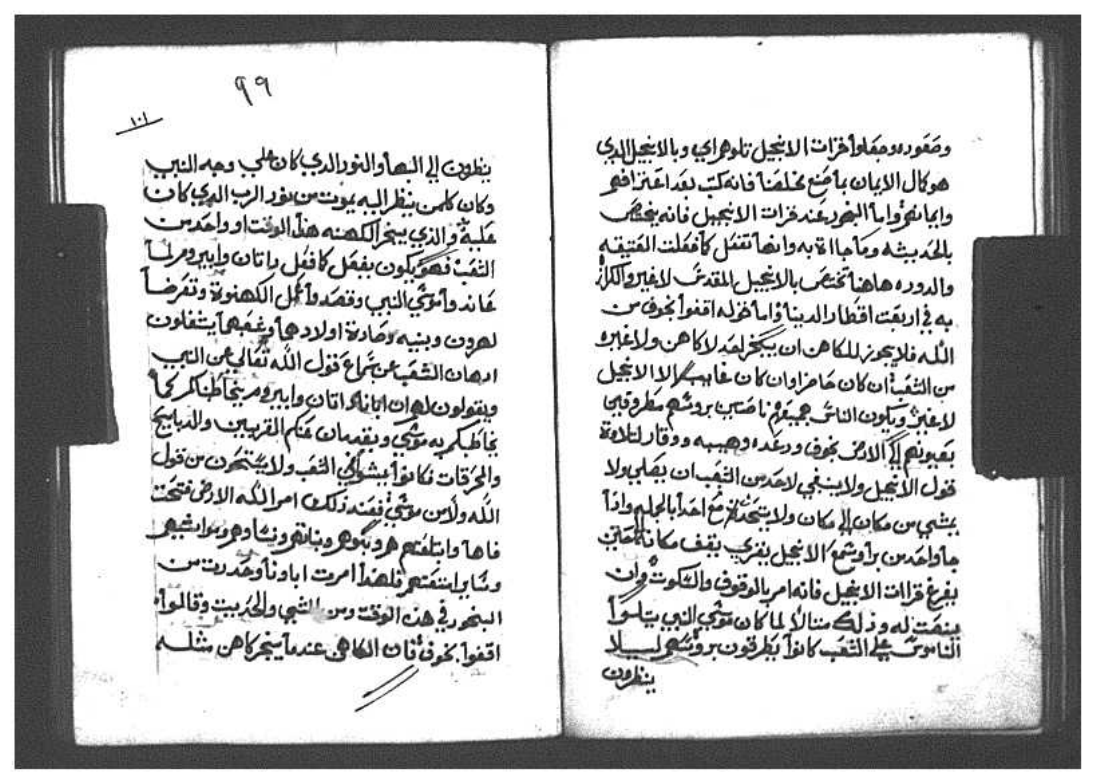 وصعوده وجعلوا قرات الانجيل تلوه اي وبالانجيل الدي
هو كمال الايمان باجمع نخلصنا فانه كتب بعد اعترافهم
وايمانهم واما البخور عند قرات الانجيل فانه يختص
بالحديثه وما جااة به وانها تفعل كافعلت العتيقه
والدوره هاهنا تختص بالانجيل المقدس لاغير والكرازه
به في اربعت اقطار الدينا واما قوله اقفوا بخوف من
الله فلا يجوز للكاهن ان يبخر لحد لاكاهن ولاغيره
من الشعب ان كان حاضرا وان كان غايب الا الانجيل
لاغير ويكون الناس جميعهم ناصتين بروسهم مطروقين
بعيونهم الي الارض بخوف ورعده وهيبه ووقار لتلاوة
قول الانجيل ولا ينبغي لاحد من الشعب ان يصلي ولا
يمشي من مكان الي مكان ولا يتحدث مع احدا بالجمله واذا
جا واحد من برا وسمع الانجيل يقري يقف مكانه حتي
يفرغ قراات الانجيل فانه امر بالوقوف والسكوت وان
ينصت له وذلك مثالا لما كان موسي النبي يتلوا
الناموس علي الشعب كانوا يطرقون بروسهم ليلا
ينظرون
٩٩
١٠١
ينظرون الي البها والنور الدي كان علي وجه النبي
وكان كلمن ينظر اليه يموت من نور الرب الدي كان
عليه والذي يبخر الكهنه هدا الوقت او واحد من
الشعب فهو يكون بفعل كافعل داتان وابيروم لما
عاندوا موسي النبي وقصدوا عمل الكهنوة وتعرضا
لهرون وبنيه وصارة اولادهما وغيرهما يشغلون
ادهان الشعب عن سماع قول الله تعالي عن النبي
ويقولون لهم ان اتانا داتان وابيروم يخاطبناكم كما
يخاطبكم به موسي ويقدمان عنكم القرابين والدبايح
والحرقات فكانوا يشوشوا الشعب ولا يستمعون من قول
الله ولا من موسي فعند ذلك امر الله الارض فتحت
فاها وابتلعتهم هم وبنوهم وبناتهم ونساوهم ومواشيهم
وسايرامتعتهم فلهدا امرت اباونا وحدرت من
البخور في هذ الوقت ومن المشي والحديت وقالوا
اقفوا بخوف فان الكاهن عندما يبخر كاهن مثله